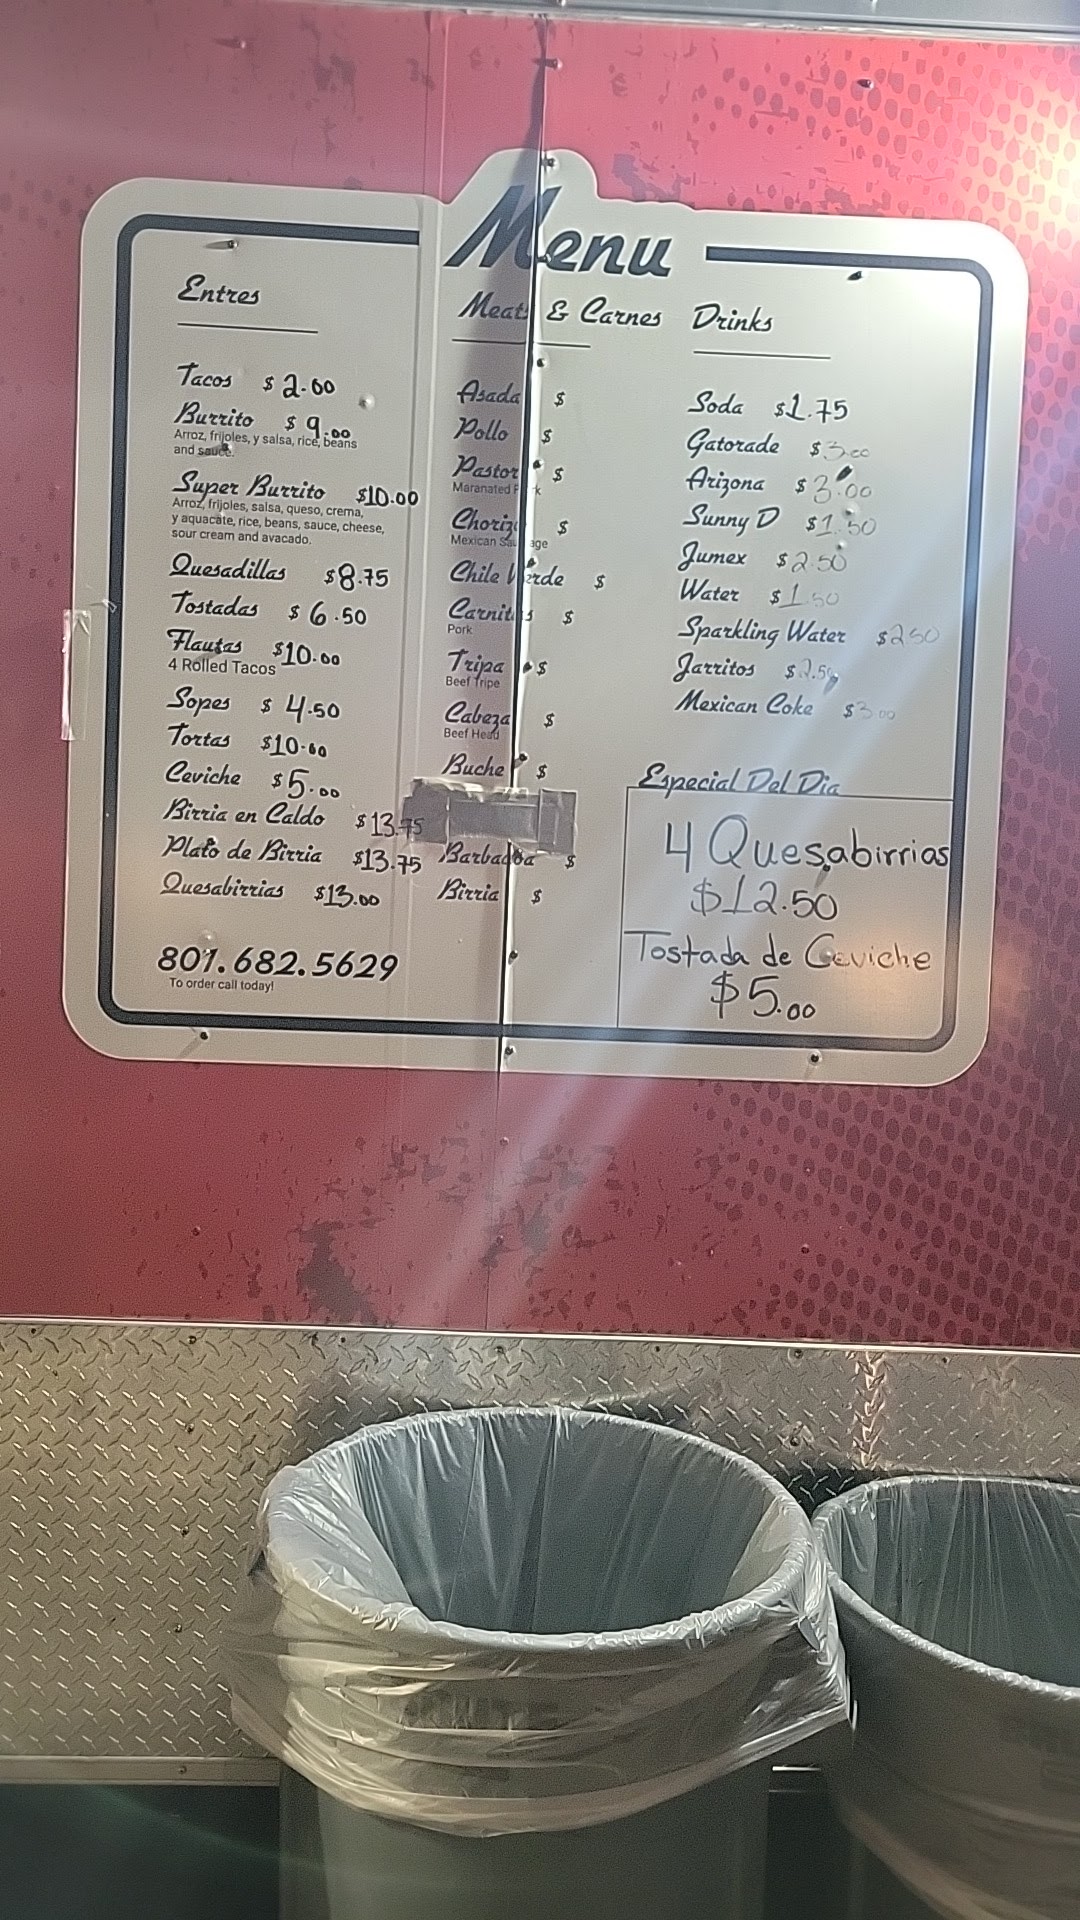 Menu
Entres
Tacos $ 2.00
Burrito $ 9.00
Arroz, frijoles, y salsa, rice, beans
and sauce.
Super Burrito $10.00
Arroz, frijoles, salsa, queso, crema,
y aquacate, rice, beans, sauce, cheese,
sour cream and avacado.
Quesadillas $8.75
Tostadas $ 6.50
Flautas $10.00
4 Rolled Tacos
Sopes $ 4.50
Tortas $10.00
Ceviche $5.00
Birria en Caldo $13.75
Plato de Birria $13.75
Quesabirrias $13.00
801.682.5629
To order call today!
Meats & Carnes
Asada $
Pollo $
Pastor $
Maranated Pork
Chorizo $
Mexican Sausage
Chile Verde $
Carnitas $
Pork
Tripa $
Beef Tripe
Cabeza $
Beef Head
Buche $
Barbacoa $
Birria $
Drinks
Soda $1.75
Gatorade $3.00
Arizona $3.00
Sunny D $1.50
Jumex $2.50
Water $1.50
Sparkling Water $2.50
Jarritos $2.50
Mexican Coke $3.00
Especial Del Dia
4 Quesabirrias
$12.50
Tostada de Ceviche
$5.00